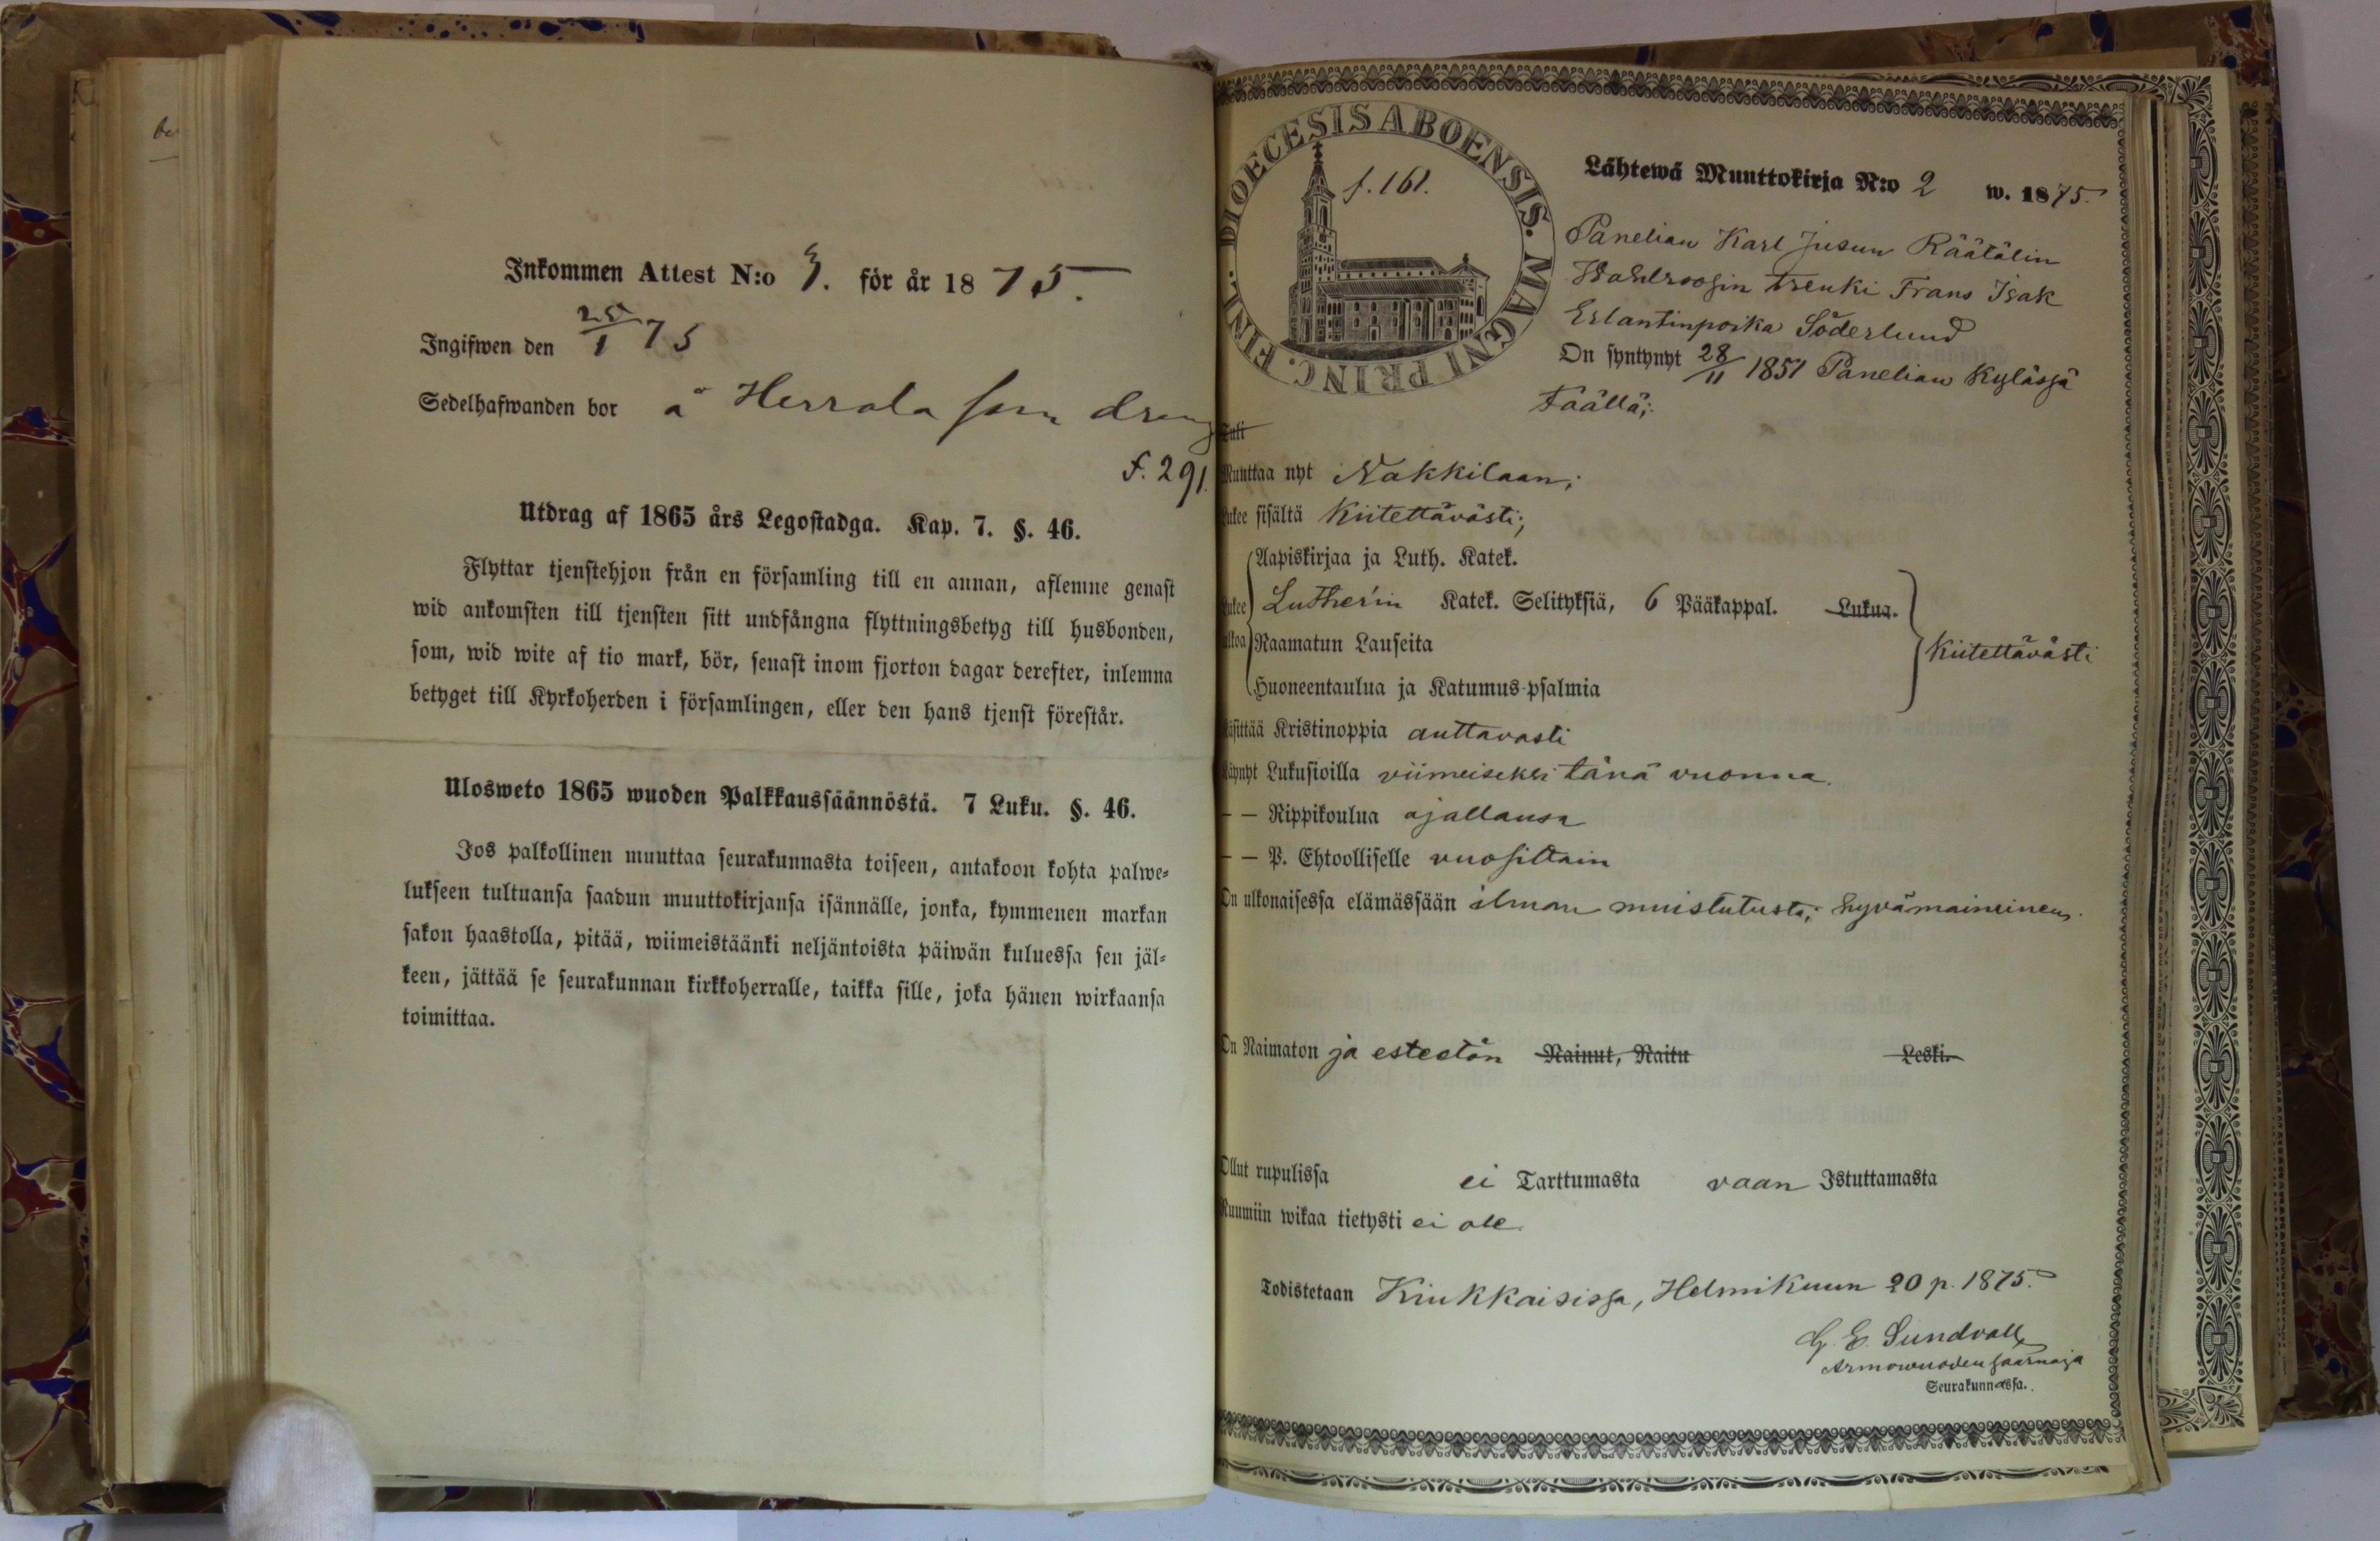 be
Inkommen Attest N:o 3. för år 1875.
Ingifwen den 25/1 75
Sedelhafwanden bor å Herrala som dreng
f. 291.
Utdrag af 1865 års Legostadga. Kap. 7. §. 46.
Flyttar tjenstehjon från en församling till en annan, aflemne genast
wid ankomsten till tjensten sitt undfångna flyttningsbetyg till husbonden,
som, wid wite af tio mark, bör, senast inom fjorton dagar derefter, inlemna
betyget till Kyrkoherden i församlingen, eller den hans tjenst förestår.
Ulosweto 1865 wuoden Palkkaussäännöstä. 7 Luku. §. 46.
Jos palkollinen muuttaa seurakunnasta toiseen, antakoon kohta palwe-
lukseen tultuansa saadun muuttokirjansa isännälle, jonka, kymmenen markan
sakon haastolla, pitää, wiimeistäänki neljäntoista päiwän kuluessa sen jäl-
keen, jättää se seurakunnan kirkkoherralle, taikka sille, joka hänen wirkaansa
toimittaa.
DIOECESIS ABOENSIS. MAGNI PRINC. FINL.
f. 161.
Lähtewä Muuttokirja N:o 2 w. 1875.
Panelian Karl Jusun Räätälin
Wahlroosin trenki Frans Isak
Erlantinpoika Söderlund
On syntynyt 28/11 1851 Panelian Kylässä
täällä;
Tuli
Muuttaa nyt Nakkilaan;
Lukee sisältä Kiitettävästi;
Aapiskirjaa ja Luth. Katek.
Lukee Luther'in Katek. Selityksiä, 6 Pääkappal. Lukua.
ulkoa Raamatun Lauseita Kiitettävästi
Huoneentaulua ja Katumus-psalmia
Käsittää Kristinoppia auttavasti
Käynyt Lukusioilla viimeiseksi tänä vuonna.
— — Rippikoulua ajallansa
— — P. Ehtoolliselle vuosittain
On ulkonaisessa elämässään ilman muistutusta; hyvämaineinen.
On Naimaton ja esteetön Nainut, Naitu Leski.
Ollut rupulissa ei Tarttumasta vaan Istuttamasta
Ruumiin wikaa tietysti ei ole.
Todistetaan Kiukkaisissa, Helmikuun 20 p. 1875.
G. E. Sundvall
Armowuoden saarnaaja
Seurakunnassa.